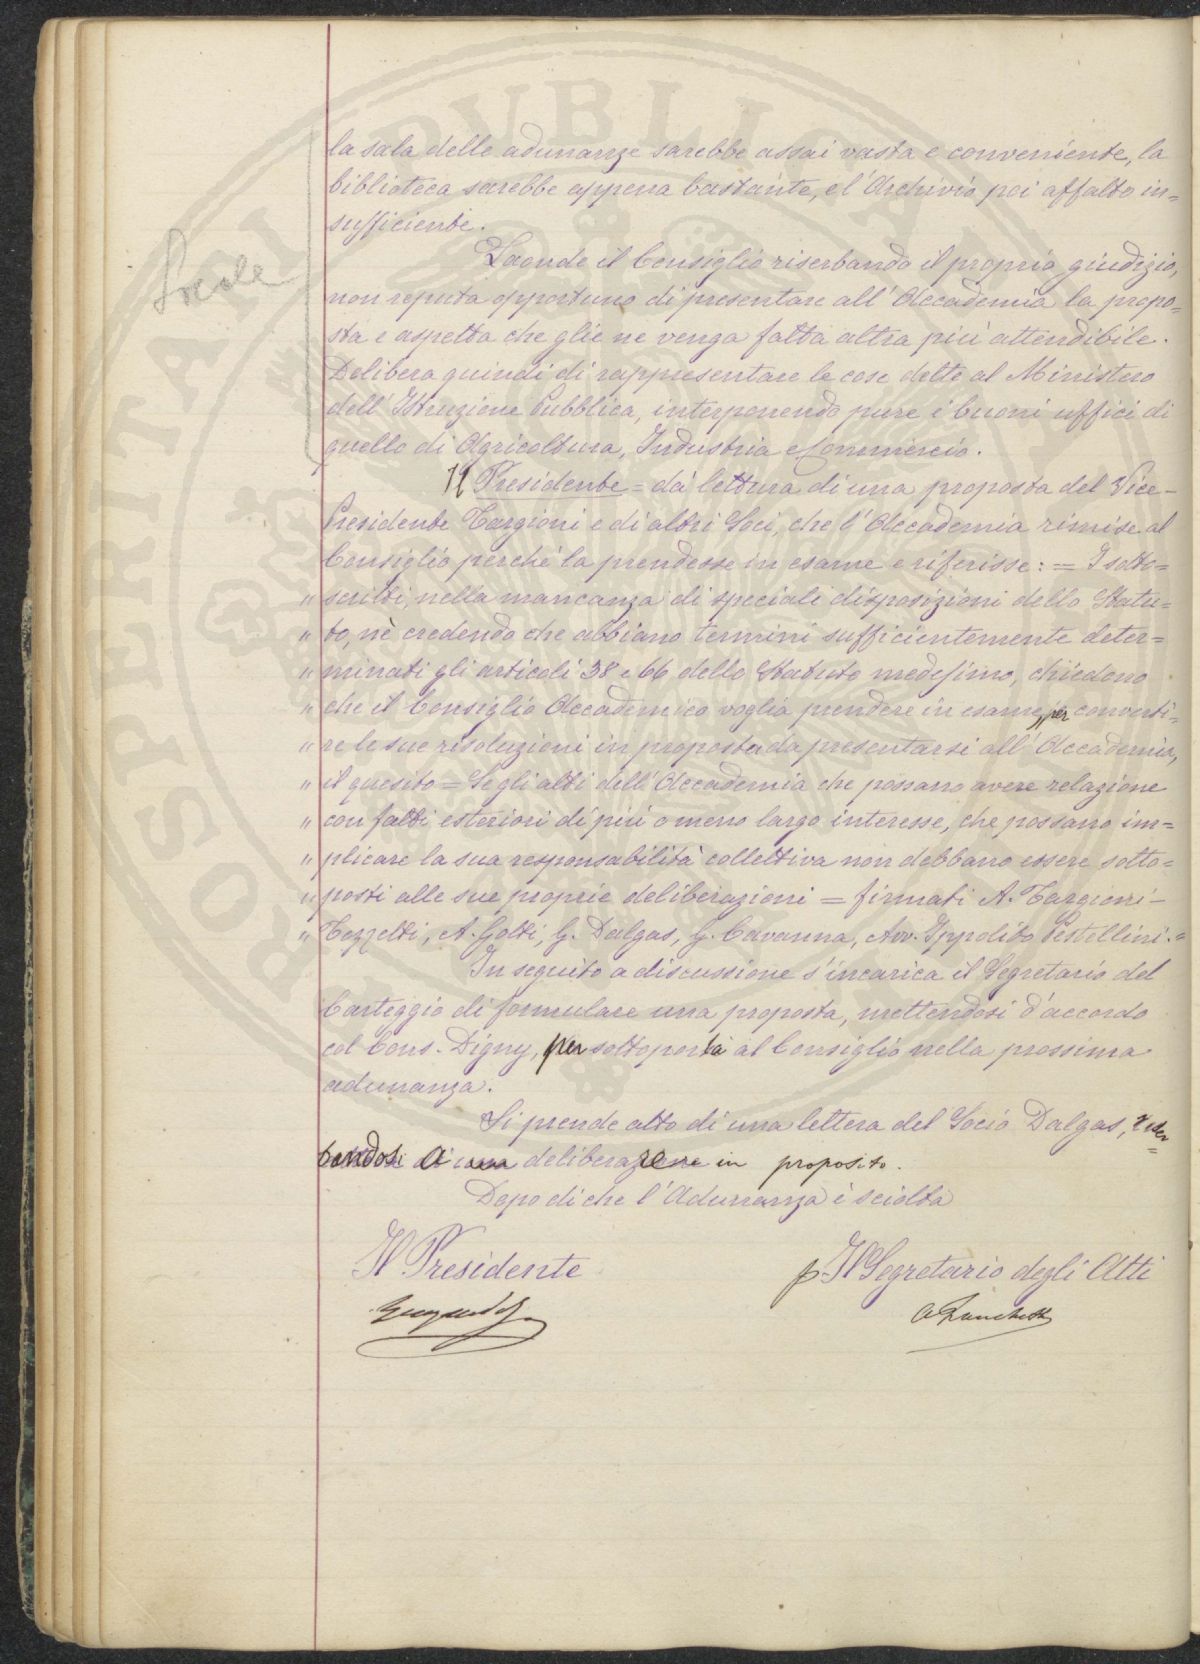 la sala delle adunanze sarebbe assai vasta e conveniente, la
biblioteca sarebbe appena bastante, e l'Archivio poi affatto in=
sufficiente.
Locale
Laonde il Consiglio riserbando il proprio giudizio,
non reputa opportuno di presentare all'Accademia la propo=
sta e aspetta che glie ne venga fatta altra più attendibile.
Delibera quindi di rappresentare le cose dette al Ministero
dell'Istruzione Pubblica, interponendo pure i buoni uffici di
quello di Agricoltura, Industria e Commercio.
Il Presidente = dà lettura di una proposta del Vice-
Presidente Targioni e di altri Soci, che l'Accademia rimise al
Consiglio perché la prendesse in esame e riferisse: = I sotto=
" scritti, nella mancanza di speciali disposizioni dello Statu=
" to, nè credendo che abbiano termini sufficientemente deter=
" minati gli articoli 38 e 66 dello Statuto medesimo, chiedono
" che il Consiglio Accademico voglia prendere in esame, per converti=
" re le sue risoluzioni in proposta da presentarsi all'Accademia,
" il quesito = Se gli atti dell'Accademia che possano avere relazione
" con fatti esteriori di più o meno largo interesse, che possano im=
" plicare la sua responsabilità collettiva non debbano essere sotto=
" posti alle sue proprie deliberazioni = firmati A. Targioni-
" Tozzetti, A. Golti, G. Dalgas, G. Cavanna, Avv. Ippolito Pestellini. =
In seguito a discussione s'incarica il Segretario del
Carteggio di formulare una proposta, mettendosi d'accordo
col Cons. Digny, per sottoporla al Consiglio nella prossima
adunanza.
Si prende atto di una lettera del Socio Dalgas, riser
bandosi a deliberare in proposito.
Dopo di che l'Adunanza è sciolta
Il Presidente
p. Il Segretario degli Atti
PROSPERITATI PVBLICAE